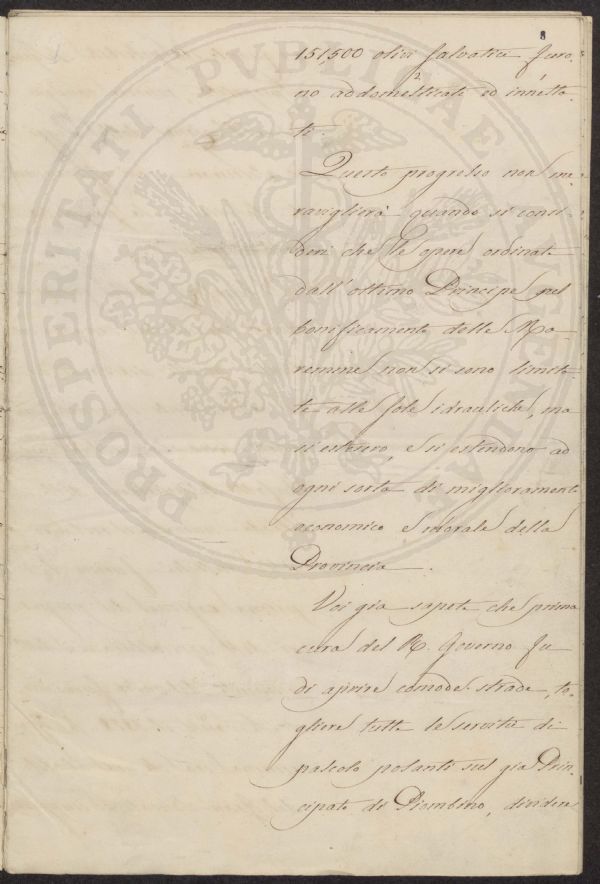 8
151,500 olivi salvatici furo-
no addomesticati ed innesta-
ti.
Questo progresso non me-
raviglierà quando si consi-
deri che le opere ordinate
dall'ottimo Principe pel
bonificamento delle Ma-
remme non si sono limita-
te alle sole idrauliche, ma
si estesero, e si estendono ad
ogni sorta di miglioramento
economico e morale della
Provincia.
Voi già sapete che prima
cura del R. Governo fu
di aprire comode strade, to-
gliere tutte le servitù di
pascolo posanti sul già Prin-
cipato di Piombino, dividere
PROSPERITATI PVBLICAE AVGENDAE